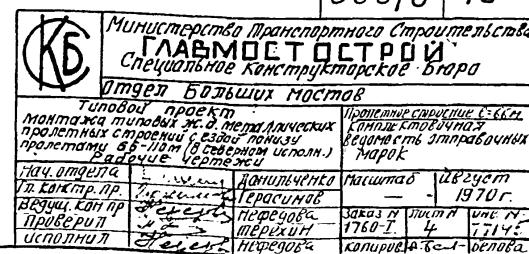 КБ
Министерство Транспортного Строительства
ГЛАВМОСТОСТРОЙ
Специальное Конструкторское Бюро
Отдел Больших мостов
Типовой проект
монтажа типовых ж.д. металлических
пролетных строений с ездой понизу
пролетами 66-110м (в северном исполн.)
Рабочие чертежи
Пролетное строение ℓ=66м
Комплектовочная
ведомость отправочных
марок
Нач. отдела Данильченко Масштаб Август
Гл. констр. пр. Герасимов — 1970г.
Ведущ. кон пр Нефедова Заказ N Лист N инв. N
Проверил Терехин 1760-I 4
исполнил Нефедова копиров. Белова